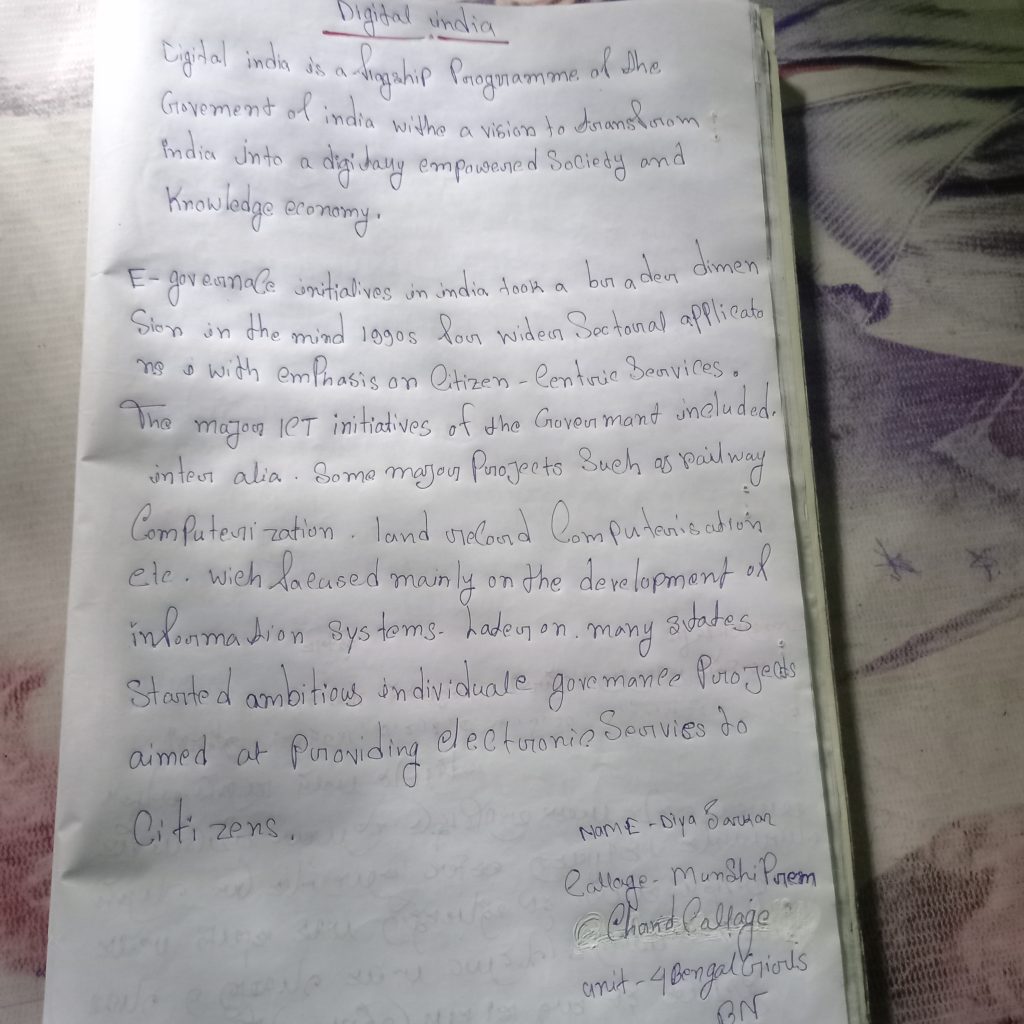 Digital india
Digital india is a flagship Programme of the
Goverment of india withe a vision to transform
india into a digitaly empowered Society and
Knowledge economy.
E-governace initialives in india took a bur ader dimen
Sion in the mind 1990s for wider Sectoral applicato
ns with emphasis on Citizen-Centric Services.
The major ICT initiatives of the Goverment included.
inter alia. Some major Projects Such as railway
Computerization. land record Computerisation
etc. wich facused mainly on the development of
information systems. Later on. many states
Started ambitious individuale governance Projects
aimed at Providing electronic Servies to
Citizens.
NAME - Diya Sarkar
Callage - Munshi Prem
Chand Callage
unit - 4 Bengal Girls
BN